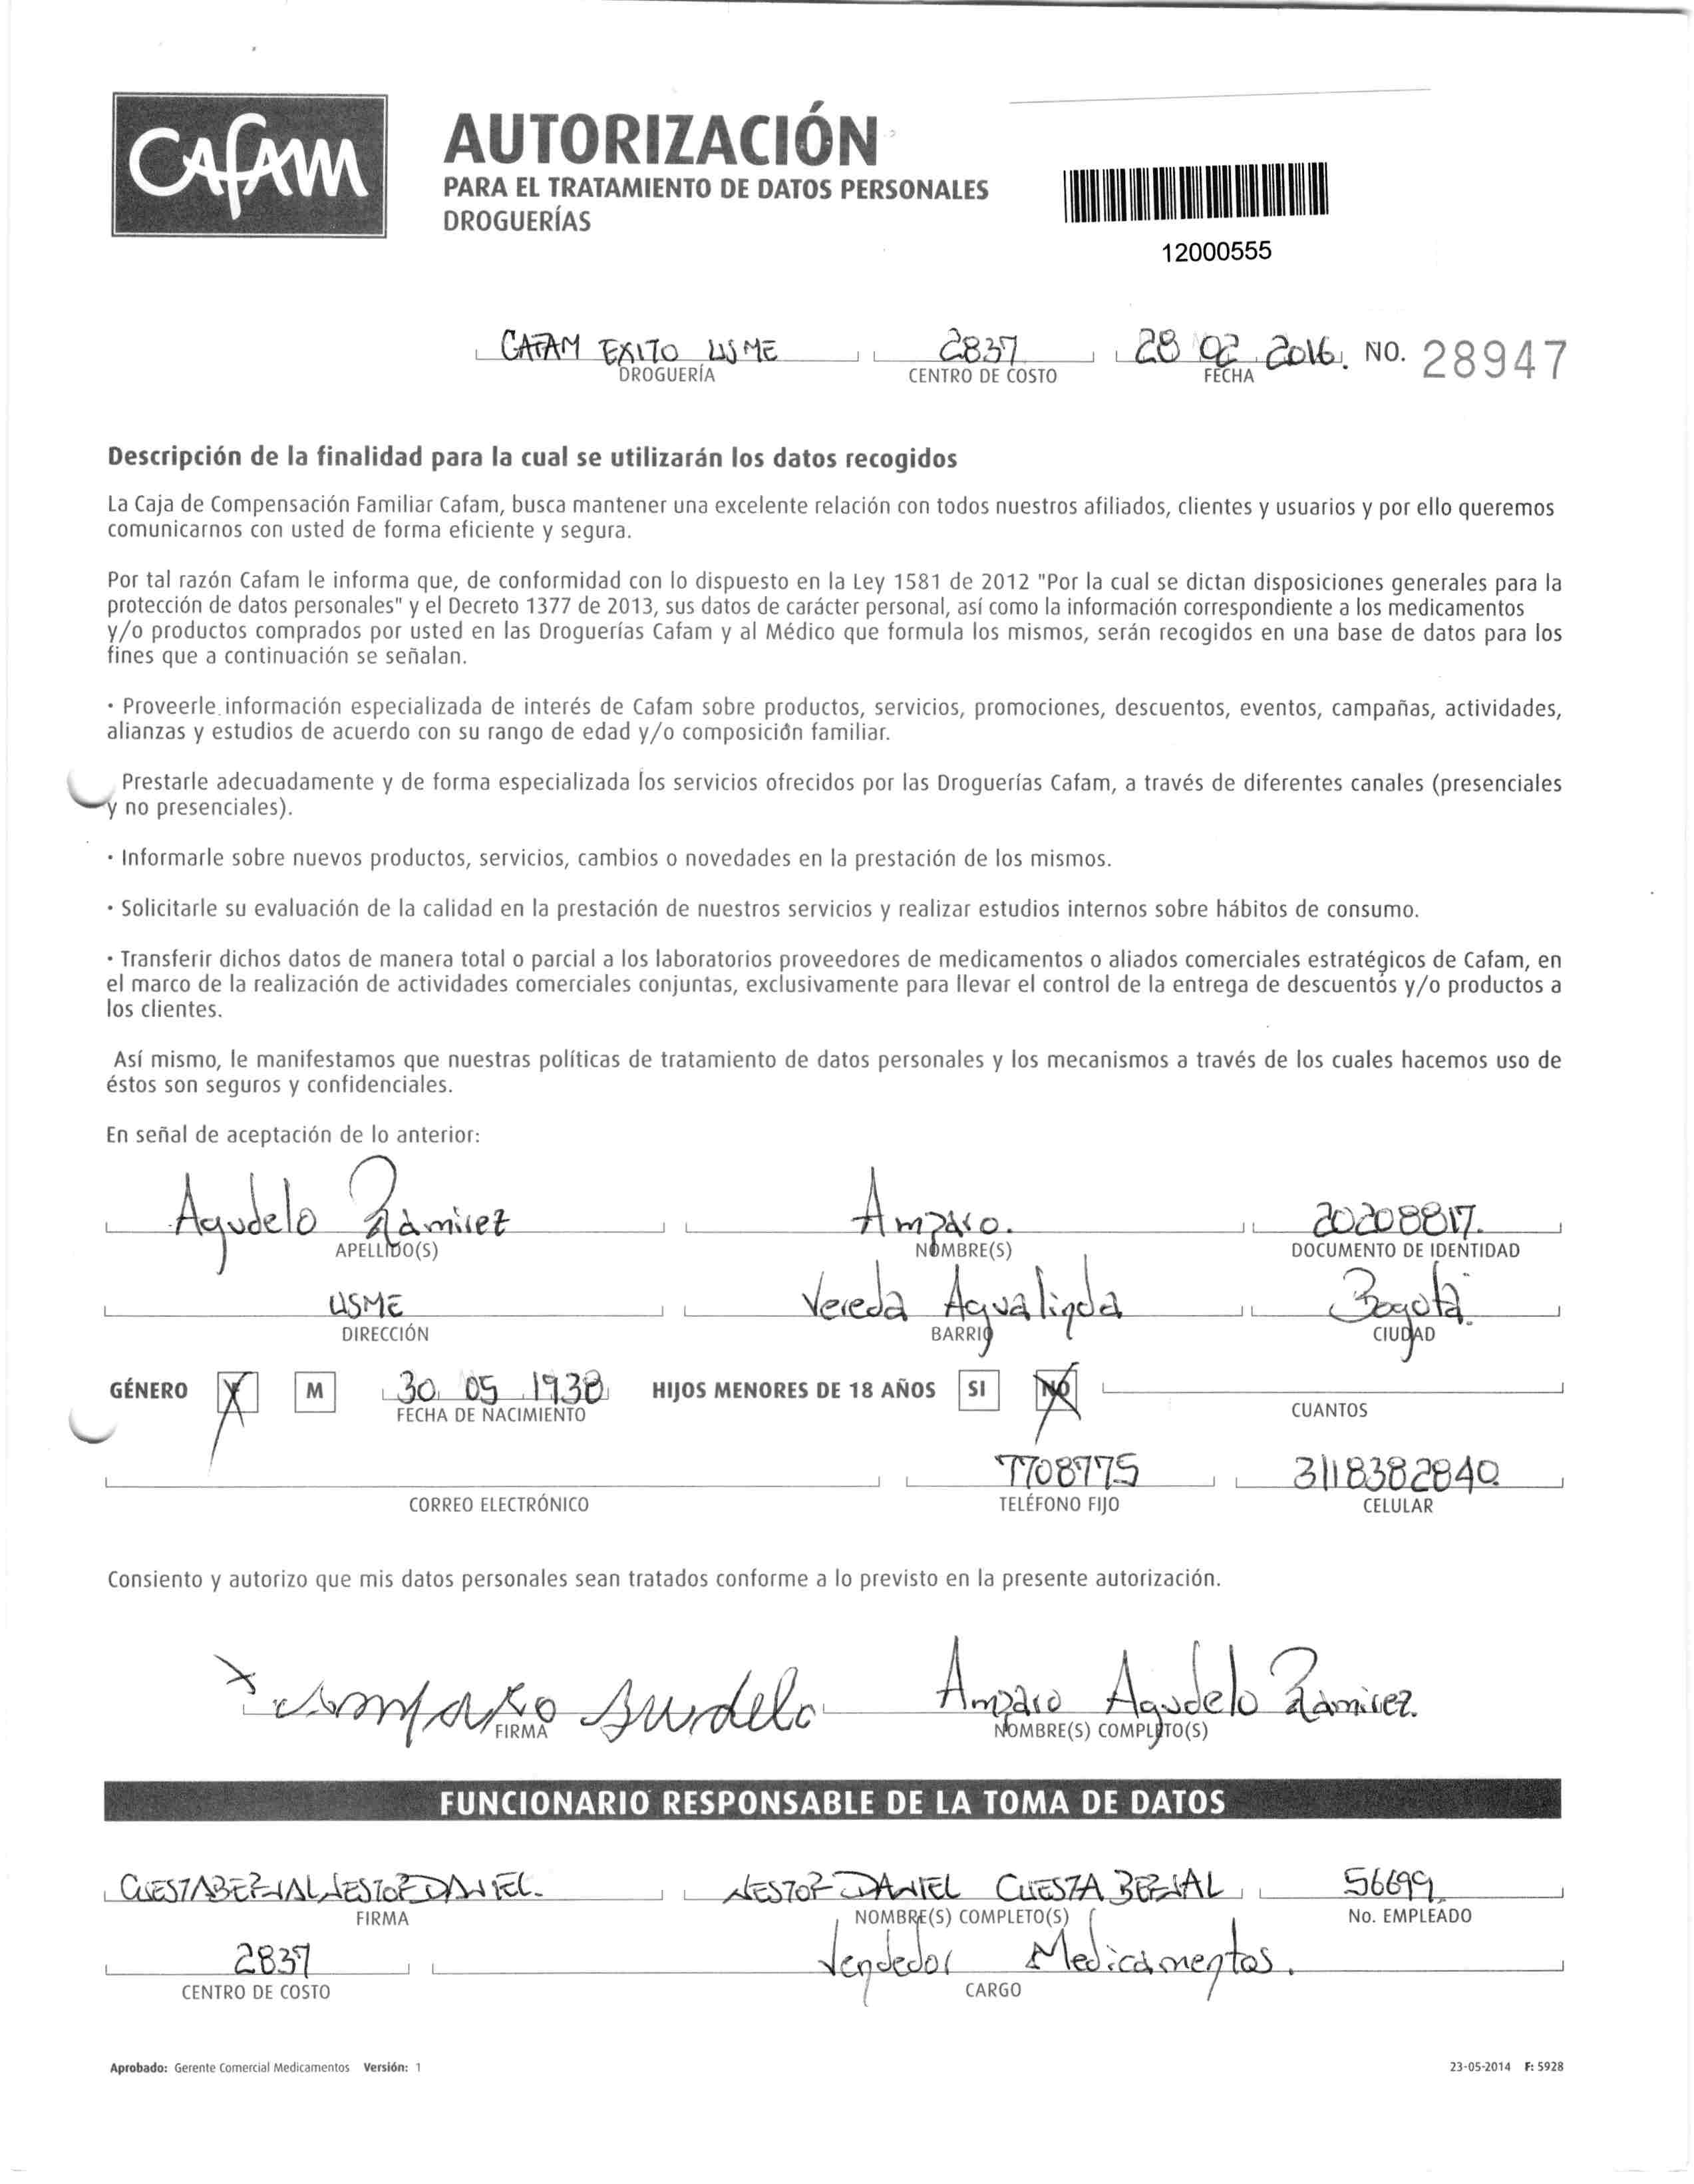 CAFAM
AUTORIZACIÓN
PARA EL TRATAMIENTO DE DATOS PERSONALES
DROGUERÍAS
12000555
CAFAM EXITO USME 2837 28 02 2016. NO. 28947
DROGUERÍA CENTRO DE COSTO FECHA
Descripción de la finalidad para la cual se utilizarán los datos recogidos
La Caja de Compensación Familiar Cafam, busca mantener una excelente relación con todos nuestros afiliados, clientes y usuarios y por ello queremos
comunicarnos con usted de forma eficiente y segura.
Por tal razón Cafam le informa que, de conformidad con lo dispuesto en la Ley 1581 de 2012 "Por la cual se dictan disposiciones generales para la
protección de datos personales" y el Decreto 1377 de 2013, sus datos de carácter personal, así como la información correspondiente a los medicamentos
y/o productos comprados por usted en las Droguerías Cafam y al Médico que formula los mismos, serán recogidos en una base de datos para los
fines que a continuación se señalan.
· Proveerle información especializada de interés de Cafam sobre productos, servicios, promociones, descuentos, eventos, campañas, actividades,
alianzas y estudios de acuerdo con su rango de edad y/o composición familiar.
Prestarle adecuadamente y de forma especializada los servicios ofrecidos por las Droguerías Cafam, a través de diferentes canales (presenciales
y no presenciales).
· Informarle sobre nuevos productos, servicios, cambios o novedades en la prestación de los mismos.
· Solicitarle su evaluación de la calidad en la prestación de nuestros servicios y realizar estudios internos sobre hábitos de consumo.
· Transferir dichos datos de manera total o parcial a los laboratorios proveedores de medicamentos o aliados comerciales estratégicos de Cafam, en
el marco de la realización de actividades comerciales conjuntas, exclusivamente para llevar el control de la entrega de descuentos y/o productos a
los clientes.
Así mismo, le manifestamos que nuestras políticas de tratamiento de datos personales y los mecanismos a través de los cuales hacemos uso de
éstos son seguros y confidenciales.
En señal de aceptación de lo anterior:
Agudelo Ramirez Amparo. 20208817.
APELLIDO(S) NOMBRE(S) DOCUMENTO DE IDENTIDAD
USME Vereda Agualinda Bogotá.
DIRECCIÓN BARRIO CIUDAD
GÉNERO X M 30 05 1938 HIJOS MENORES DE 18 AÑOS SI NO
FECHA DE NACIMIENTO CUANTOS
7708775 3118382840
CORREO ELECTRÓNICO TELÉFONO FIJO CELULAR
Consiento y autorizo que mis datos personales sean tratados conforme a lo previsto en la presente autorización.
X Amparo Agudelo Amparo Agudelo Ramirez.
FIRMA NOMBRE(S) COMPLETO(S)
FUNCIONARIO RESPONSABLE DE LA TOMA DE DATOS
CUESTA BERNAL NESTOR DANIEL. NESTOR DANIEL CUESTA BERNAL 56699
FIRMA NOMBRE(S) COMPLETO(S) No. EMPLEADO
2837 Vendedor Medicamentos.
CENTRO DE COSTO CARGO
Aprobado: Gerente Comercial Medicamentos Versión: 1 23-05-2014 F: 5928